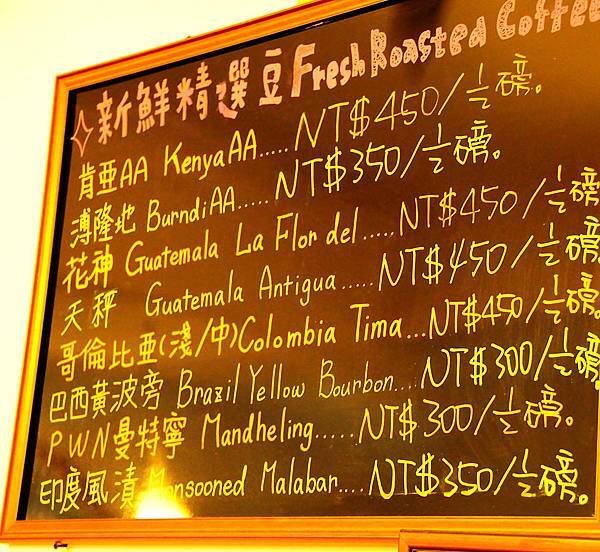 新鮮精選豆 Fresh Roasted Coffee
肯亞AA KenyaAA.....NT$450/½磅。
溥隆地 BurndiAA.....NT$350/½磅。
花神 Guatemala La Flor del.....NT$450/½磅
天秤 Guatemala Antigua.....NT$450/½磅。
哥倫比亞(淺/中)Colombia Tima...NT$450/½磅。
巴西黃波旁 Brazil Yellow Bourbon...NT$300/½磅。
PWN曼特寧 Mandheling.....NT$300/½磅。
印度風漬 Monsooned Malabar....NT$350/½磅。